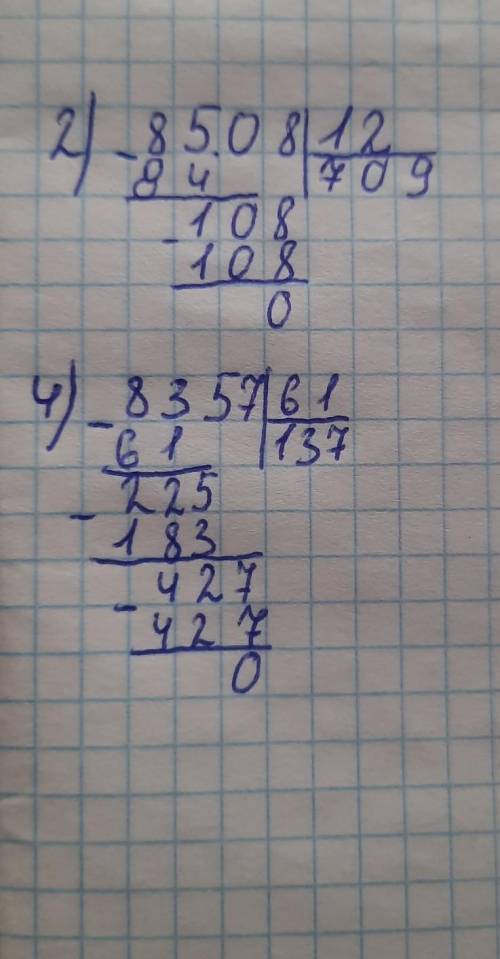 2) -8508|12
84 709
-108
108
0
4) -8357|61
61 137
-225
183
-427
427
0